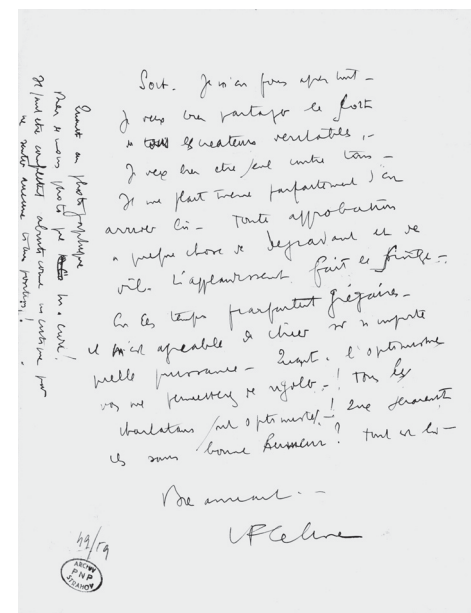 Soit. Je m'en fous après tout -
Je veux bien partager le sort
de tous les créateurs véritables, -
Je veux bien être seul contre tous -
Il me plaît même parfaitement d'en
arriver là - Toute approbation
a quelque chose de dégradant et de
vil. L'applaudissement fait le Singe -
En ces temps parfaitement grégaires -
il m'est agréable de chier sur n'importe
quelle puissance - Quant à l'optimisme
vous me permettrez de rigoler - ! Tous les
charlatans sont optimistes ! Que seraient
ils sans bonne humeur ? tout est là -
Bien amicalement. -
LF Celine
Quant au photographique
rien de mes photos
Il faut être complètement abruti comme un critique pour
ne
49/59
ARCHIV
PNP
STRAHOV